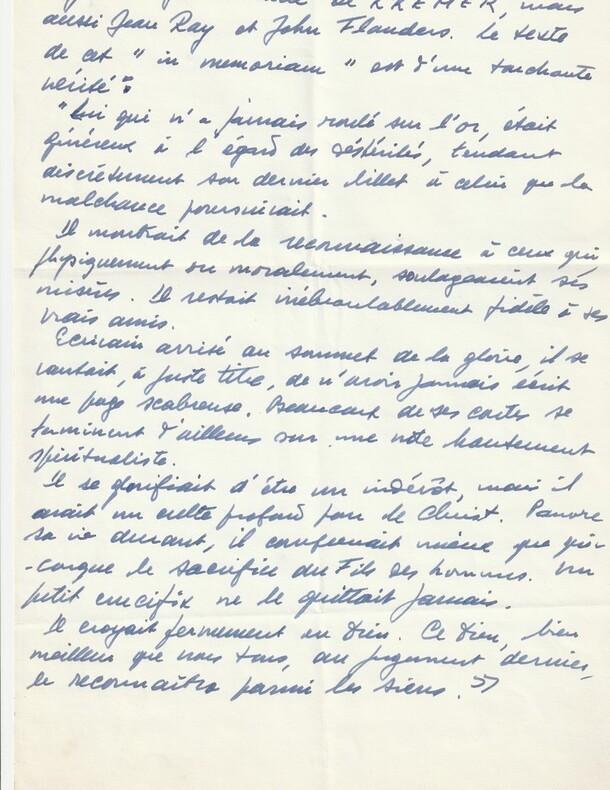 de KREMER, mais
aussi Jean Ray et John Flanders. Le texte
de cet " in memoriam " est d'une touchante
vérité :
" Lui qui n'a jamais roulé sur l'or, était
généreux à l'égard des déshérités, tendant
discrètement son dernier billet à celui que la
malchance poursuivait.
Il montrait de la reconnaissance à ceux qui,
physiquement ou moralement, soulageaient ses
misères. Il restait inébranlablement fidèle à ses
vrais amis.
Ecrivain arrivé au sommet de la gloire, il se
vantait, à juste titre, de n'avoir jamais écrit
une page scabreuse. Beaucoup de ses contes se
terminent d'ailleurs sur une note hautement
spiritualiste.
Il se glorifiait d'être un indévôt, mais il
avait un culte profond pour le Christ. Pauvre
sa vie durant, il comprenait mieux que qui-
-conque le sacrifice du Fils des hommes. Un
petit crucifix ne le quittait jamais.
Il croyait fermement en Dieu. Ce Dieu, bien
meilleur que nous tous, au jugement dernier,
le reconnaîtra parmi les siens. »